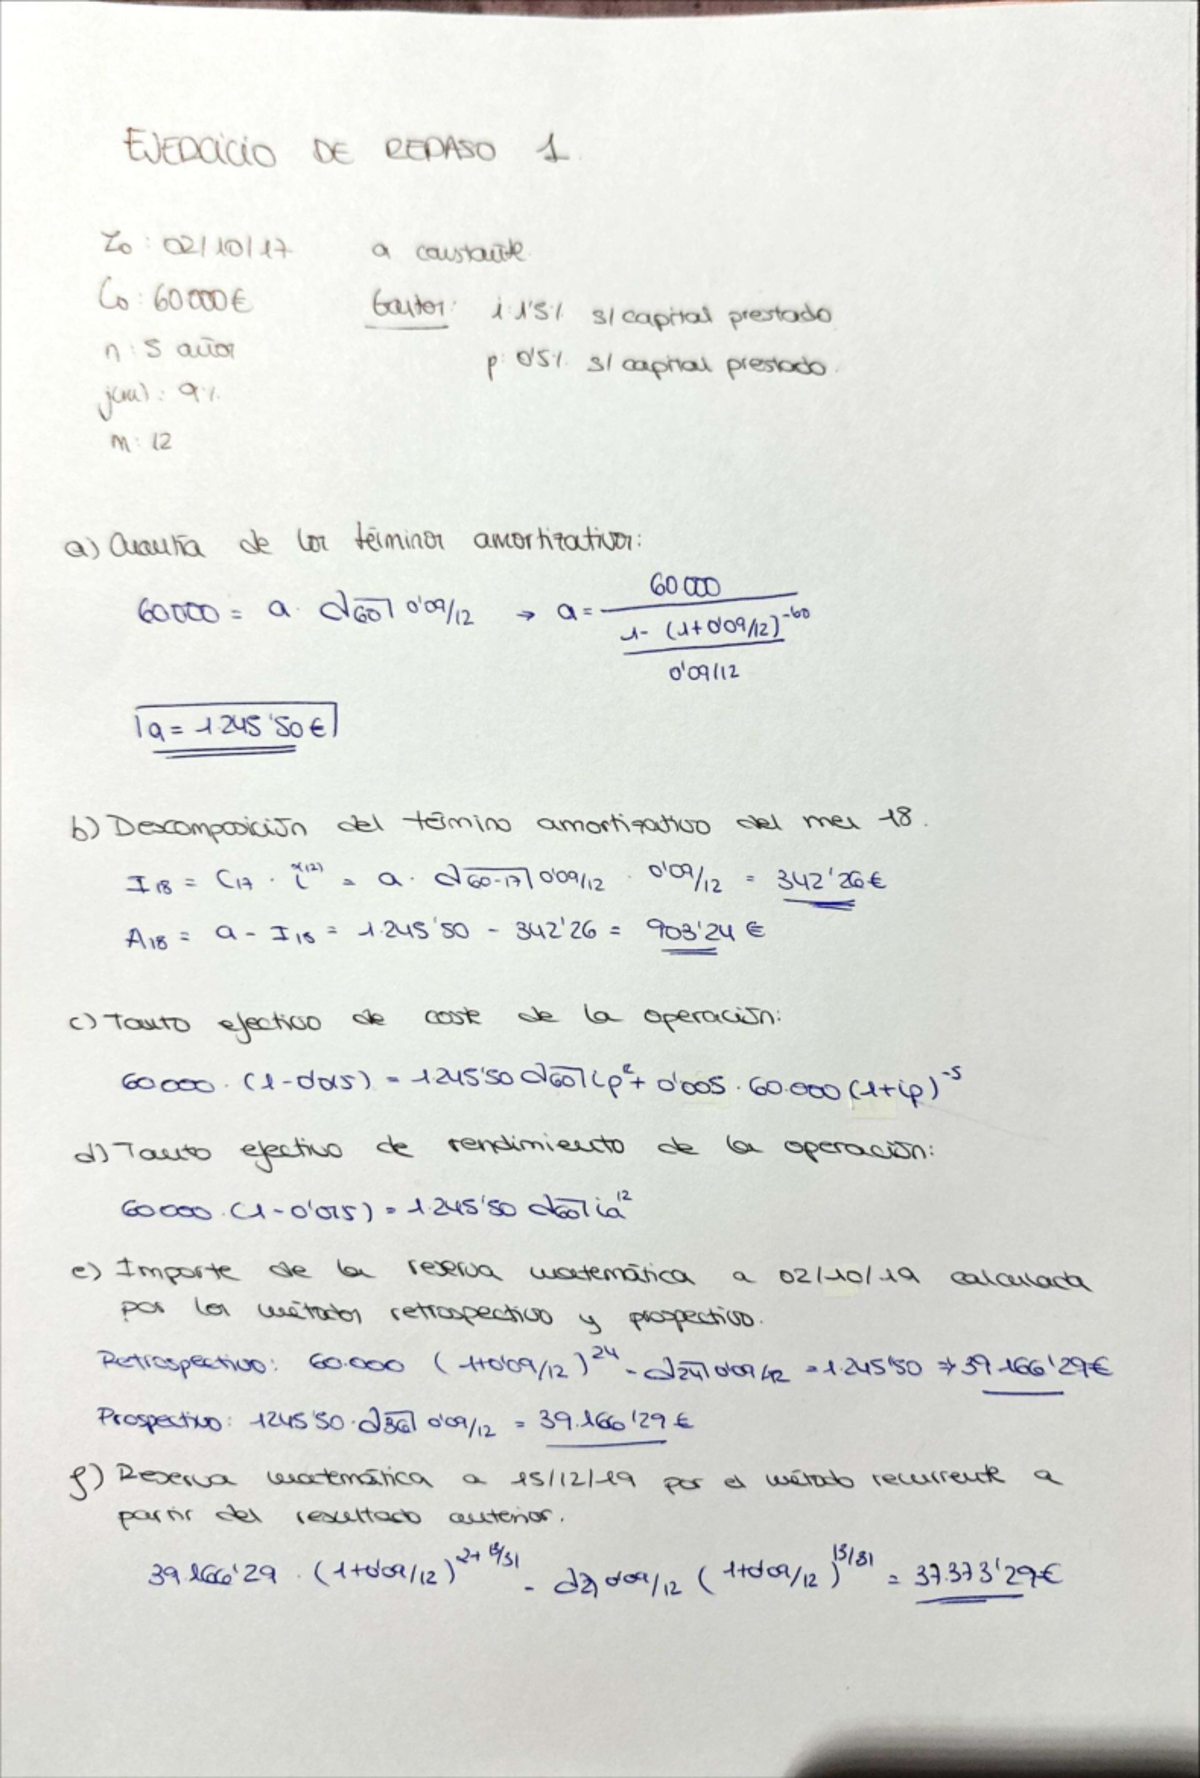 EJERCICIO DE REPASO 1.
Zo: 02/10/17 a constante
Co: 60000€ Gastos: i: 1'5% s/capital prestado
n: 5 años p: 0'5% s/ capital prestado.
j(m): 9%
m: 12
a) Cuantía de los términos amortizativos:
60000 = a · a60¬0'09/12 → a = 60000 / ((1 - (1+0'09/12)^-60) / (0'09/12))
a = 1.245'50€
b) Descomposición del término amortizativo del mes 18.
I18 = C17 · i^(12) = a · a60-17¬0'09/12 · 0'09/12 = 342'26€
A18 = a - I18 = 1.245'50 - 342'26 = 903'24 €
c) Tanto efectivo de coste de la operación:
60000 · (1-0'015) = 1245'50 a60¬ip + 0'005 · 60.000 (1+ip)^-5
d) Tanto efectivo de rendimiento de la operación:
60000 · (1-0'015) = 1.245'50 a60¬ia^12
e) Importe de la reserva matemática a 02/10/19 calculada
por los métodos retrospectivo y prospectivo.
Retrospectivo: 60.000 (1+0'09/12)^24 - a24¬0'09/12 = 1.245'50 ⇒ 39.166'29€
Prospectivo: 1245'50 · a36¬ 0'09/12 = 39.166'29 €
f) Reserva matemática a 15/12/19 por el método recurrente a
partir del resultado anterior.
39.166'29 · (1+0'09/12)^2+13/31 - a2¬ 0'09/12 (1+0'09/12)^13/31 = 37.373'29€